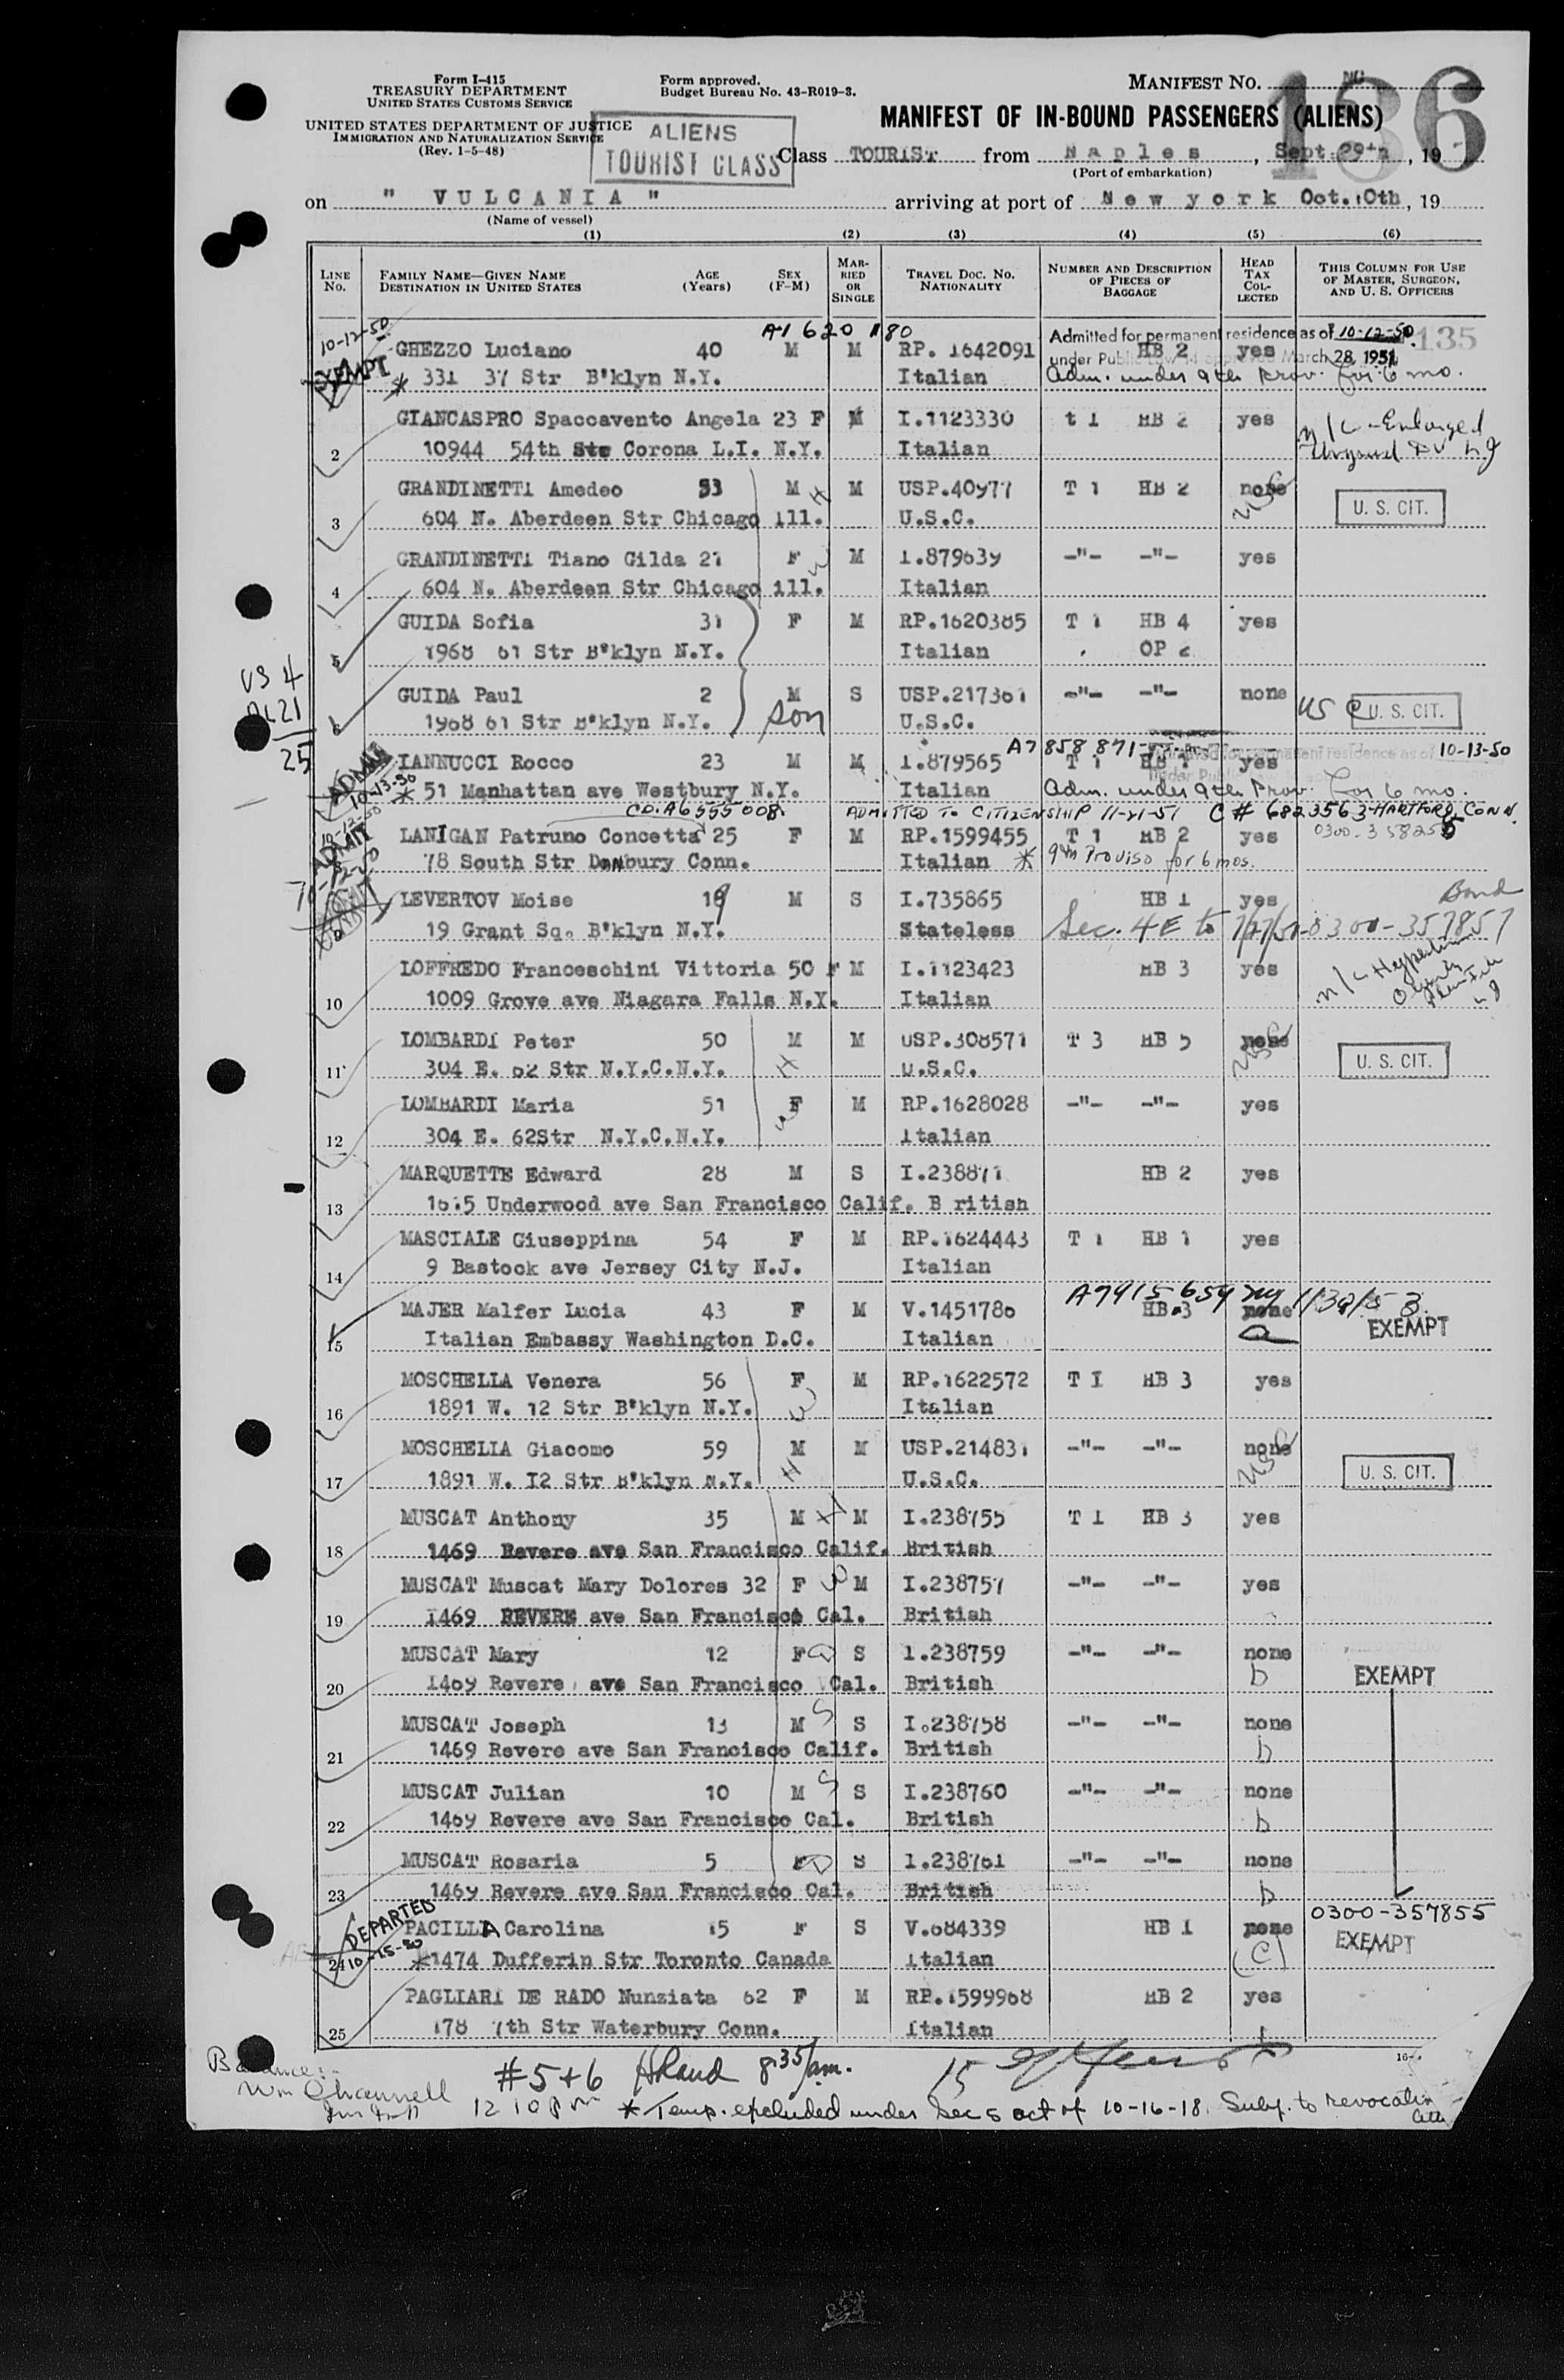 Form I-415
TREASURY DEPARTMENT
UNITED STATES CUSTOMS SERVICE
UNITED STATES DEPARTMENT OF JUSTICE
IMMIGRATION AND NATURALIZATION SERVICE
(Rev. 1-5-48)
Form approved.
Budget Bureau No. 43-R019-3.
ALIENS
TOURIST CLASS
MANIFEST NO.
136
MANIFEST OF IN-BOUND PASSENGERS (ALIENS)
Class TOURIST from Naples, Sept. 29th, 19
(Port of embarkation)
on " VULCANIA " arriving at port of New york Oct. 10th, 19
(Name of vessel)
(1) (2) (3) (4) (5) (6)
LINE NO. FAMILY NAME—GIVEN NAME DESTINATION IN UNITED STATES AGE (Years) SEX (F-M) MARRIED OR SINGLE TRAVEL DOC. NO. NATIONALITY NUMBER AND DESCRIPTION OF PIECES OF BAGGAGE HEAD TAX COLLECTED THIS COLUMN FOR USE OF MASTER, SURGEON, AND U. S. OFFICERS
10-12-50 A1 620 180 Admitted for permanent residence as of 10-12-50 135
EXEMPT GHEZZO Luciano 40 M M RP. 1642091 HB 2 yes under Public March 28, 1951
* 331 37 Str B'klyn N.Y. Italian Adm. under 9th Prov. for 6 mo.
GIANCASPRO Spaccavento Angela 23 F M I.1123330 t 1 HB 2 yes n/c - Enlarged
2 10944 54th Str Corona L.I. N.Y. Italian
GRANDINETTI Amedeo 53 M H M USP.40977 T 1 HB 2 none USC
3 604 N. Aberdeen Str Chicago ill. U.S.C. U. S. CIT.
GRANDINETTI Tiano Gilda 27 F W M I.879639 -"- -"- yes
4 604 N. Aberdeen Str Chicago ill. Italian
GUIDA Sofia 31 F M RP.1620385 T 1 HB 4 yes
5 1968 61 Str B'klyn N.Y. Italian OP 2
US 4
AL 21
25
GUIDA Paul 2 M S USP.217361 -"- -"- none US C U. S. CIT.
6 1968 61 Str B'klyn N.Y. son U.S.C.
A7 858 871 residence as of 10-13-50
ADMIT 10-13-50 IANNUCCI Rocco 23 M M I.879565 T 1 HB 1 yes
* 51 Manhattan ave Westbury N.Y. Italian Adm. under 9th Prov. for 6 mo.
CO. A6 555 008 ADMITTED TO CITIZENSHIP 11-21-51 C # 6823563-HARTFORD, CONN.
10-12-50 ADMIT LANIGAN Patruno Concetta 25 F M RP.1599455 T 1 HB 2 yes 0300-358258
78 South Str DaNbury Conn. Italian * 9th Proviso for 6 mos.
LEVERTOV Moise 19 M S I.735865 HB 1 yes Bond
19 Grant Sq. B'klyn N.Y. Stateless Sec. 4E to 7/27/51-0300-357857
LOFFREDO Franceschini Vittoria 50 F M I.1123423 HB 3 yes
10 1009 Grove ave Niagara Falls N.Y. Italian
LOMBARDI Peter 50 M H M USP.308571 T 3 HB 5 none USC
11 304 E. 62 Str N.Y.C.N.Y. U.S.C. U. S. CIT.
LOMBARDI Maria 51 F W M RP.1628028 -"- -"- yes
12 304 E. 62Str N.Y.C.N.Y. Italian
MARQUETTE Edward 28 M S I.238871 HB 2 yes
13 1615 Underwood ave San Francisco Calif. B ritish
MASCIALE Giuseppina 54 F M RP.1624443 T 1 HB 1 yes
14 9 Bastock ave Jersey City N.J. Italian
A7915 659 1/30/53
MAJER Malfer Lucia 43 F M V.1451780 HB.3 none
15 Italian Embassy Washington D.C. Italian a EXEMPT
MOSCHELLA Venera 56 F W M RP.1622572 T I HB 3 yes
16 1891 W. 12 Str B'klyn N.Y. Italian
MOSCHELIA Giacomo 59 M H M USP.214831 -"- -"- none USC
17 1891 W. I2 Str B'klyn N.Y. U.S.C. U. S. CIT.
MUSCAT Anthony 35 M H M I.238755 T 1 HB 3 yes
18 1469 Revere ave San Francisco Calif. British
MUSCAT Muscat Mary Dolores 32 F W M I.238757 -"- -"- yes
19 1469 REVERE ave San Francisco Cal. British
MUSCAT Mary 12 F D S I.238759 -"- -"- none
20 1469 Revere ave San Francisco Cal. British b EXEMPT
MUSCAT Joseph 13 M S S I.238758 -"- -"- none
21 1469 Revere ave San Francisco Calif. British b
MUSCAT Julian 10 M S S I.238760 -"- -"- none
22 1469 Revere ave San Francisco Cal. British b
MUSCAT Rosaria 5 F D S I.238761 -"- -"- none
23 1469 Revere ave San Francisco Cal. British b
DEPARTED PACILLA Carolina 15 F S V.684339 HB 1 none 0300-357855
24 10-15-50 *1474 Dufferin Str Toronto Canada Italian (c) EXEMPT
PAGLIARI DE RADO Nunziata 62 F M RP.1599968 HB 2 yes
25 178 7th Str Waterbury Conn. Italian
#5+6 8 35/am. 15
12 10 pm * Temp. excluded under Sec 5 act of 10-16-18. Subj. to revocation